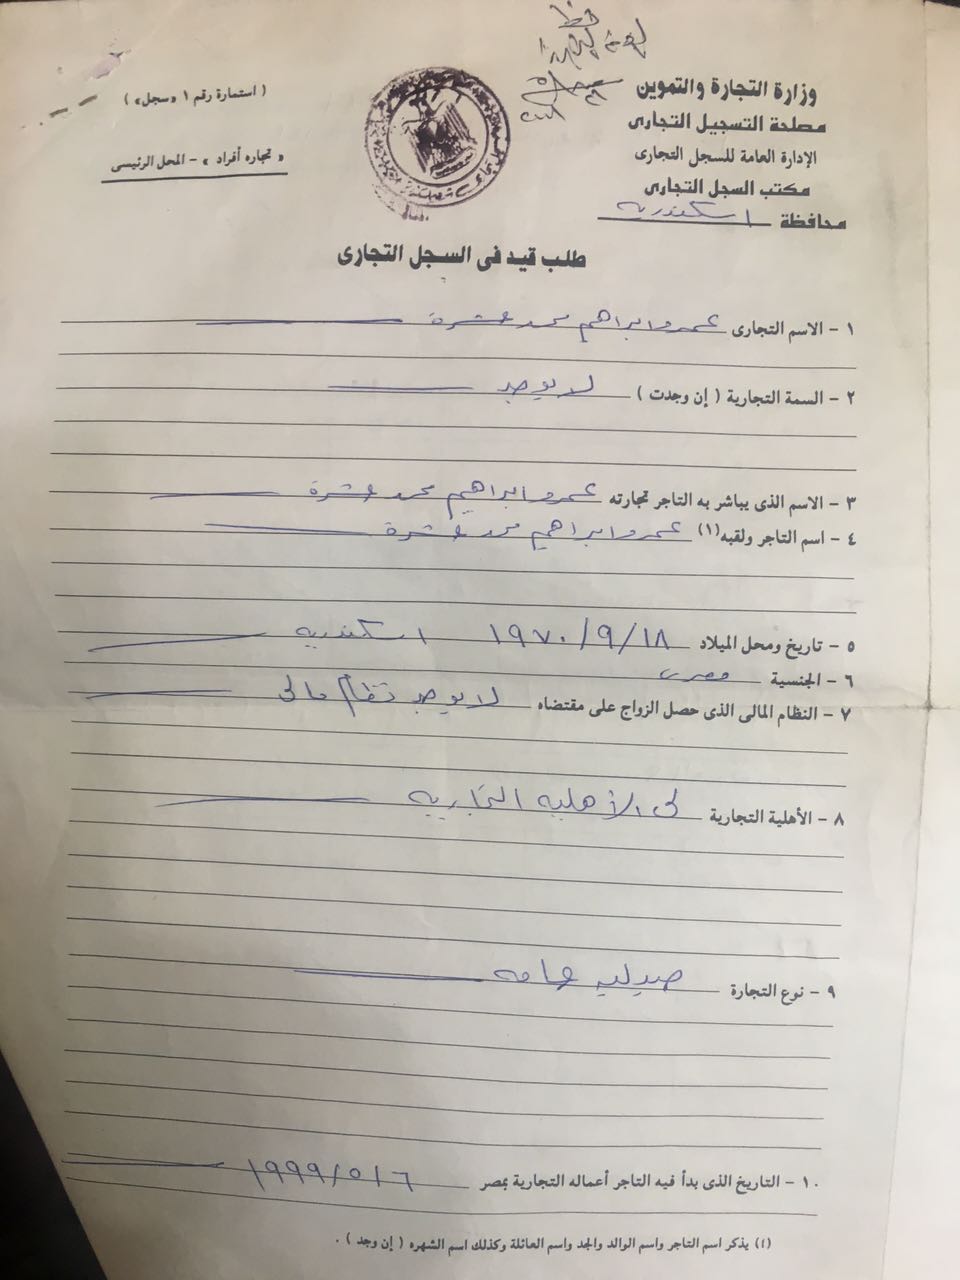 وزارة التجارة والتموين
مصلحة التسجيل التجارى
الإدارة العامة للسجل التجارى
مكتب السجل التجارى
محافظة اسكندريه
( استمارة رقم ١ «سجل» )
« تجاره أفراد » - المحل الرئيسى
طلب قيد فى السجل التجارى
١ - الاسم التجارى عمرو ابراهيم محمد عشرة
٢ - السمة التجارية ( إن وجدت ) لا يوجد
٣ - الاسم الذى يباشر به التاجر تجارته عمرو ابراهيم محمد عشرة
٤ - اسم التاجر ولقبه (١) عمرو ابراهيم محمد عشرة
٥ - تاريخ ومحل الميلاد ١٩٧٠/٩/١٨ اسكندريه
٦ - الجنسية مصرى
٧ - النظام المالى الذى حصل الزواج على مقتضاه لا يوجد نظام مالى
٨ - الأهلية التجارية لى الأهليه التجاريه
٩ - نوع التجارة صيدليه عامه
١٠ - التاريخ الذى بدأ فيه التاجر أعماله التجارية بمصر ١٩٩٩/٥/٦
(١) يذكر اسم التاجر واسم الوالد والجد واسم العائلة وكذلك اسم الشهره ( إن وجد ) .